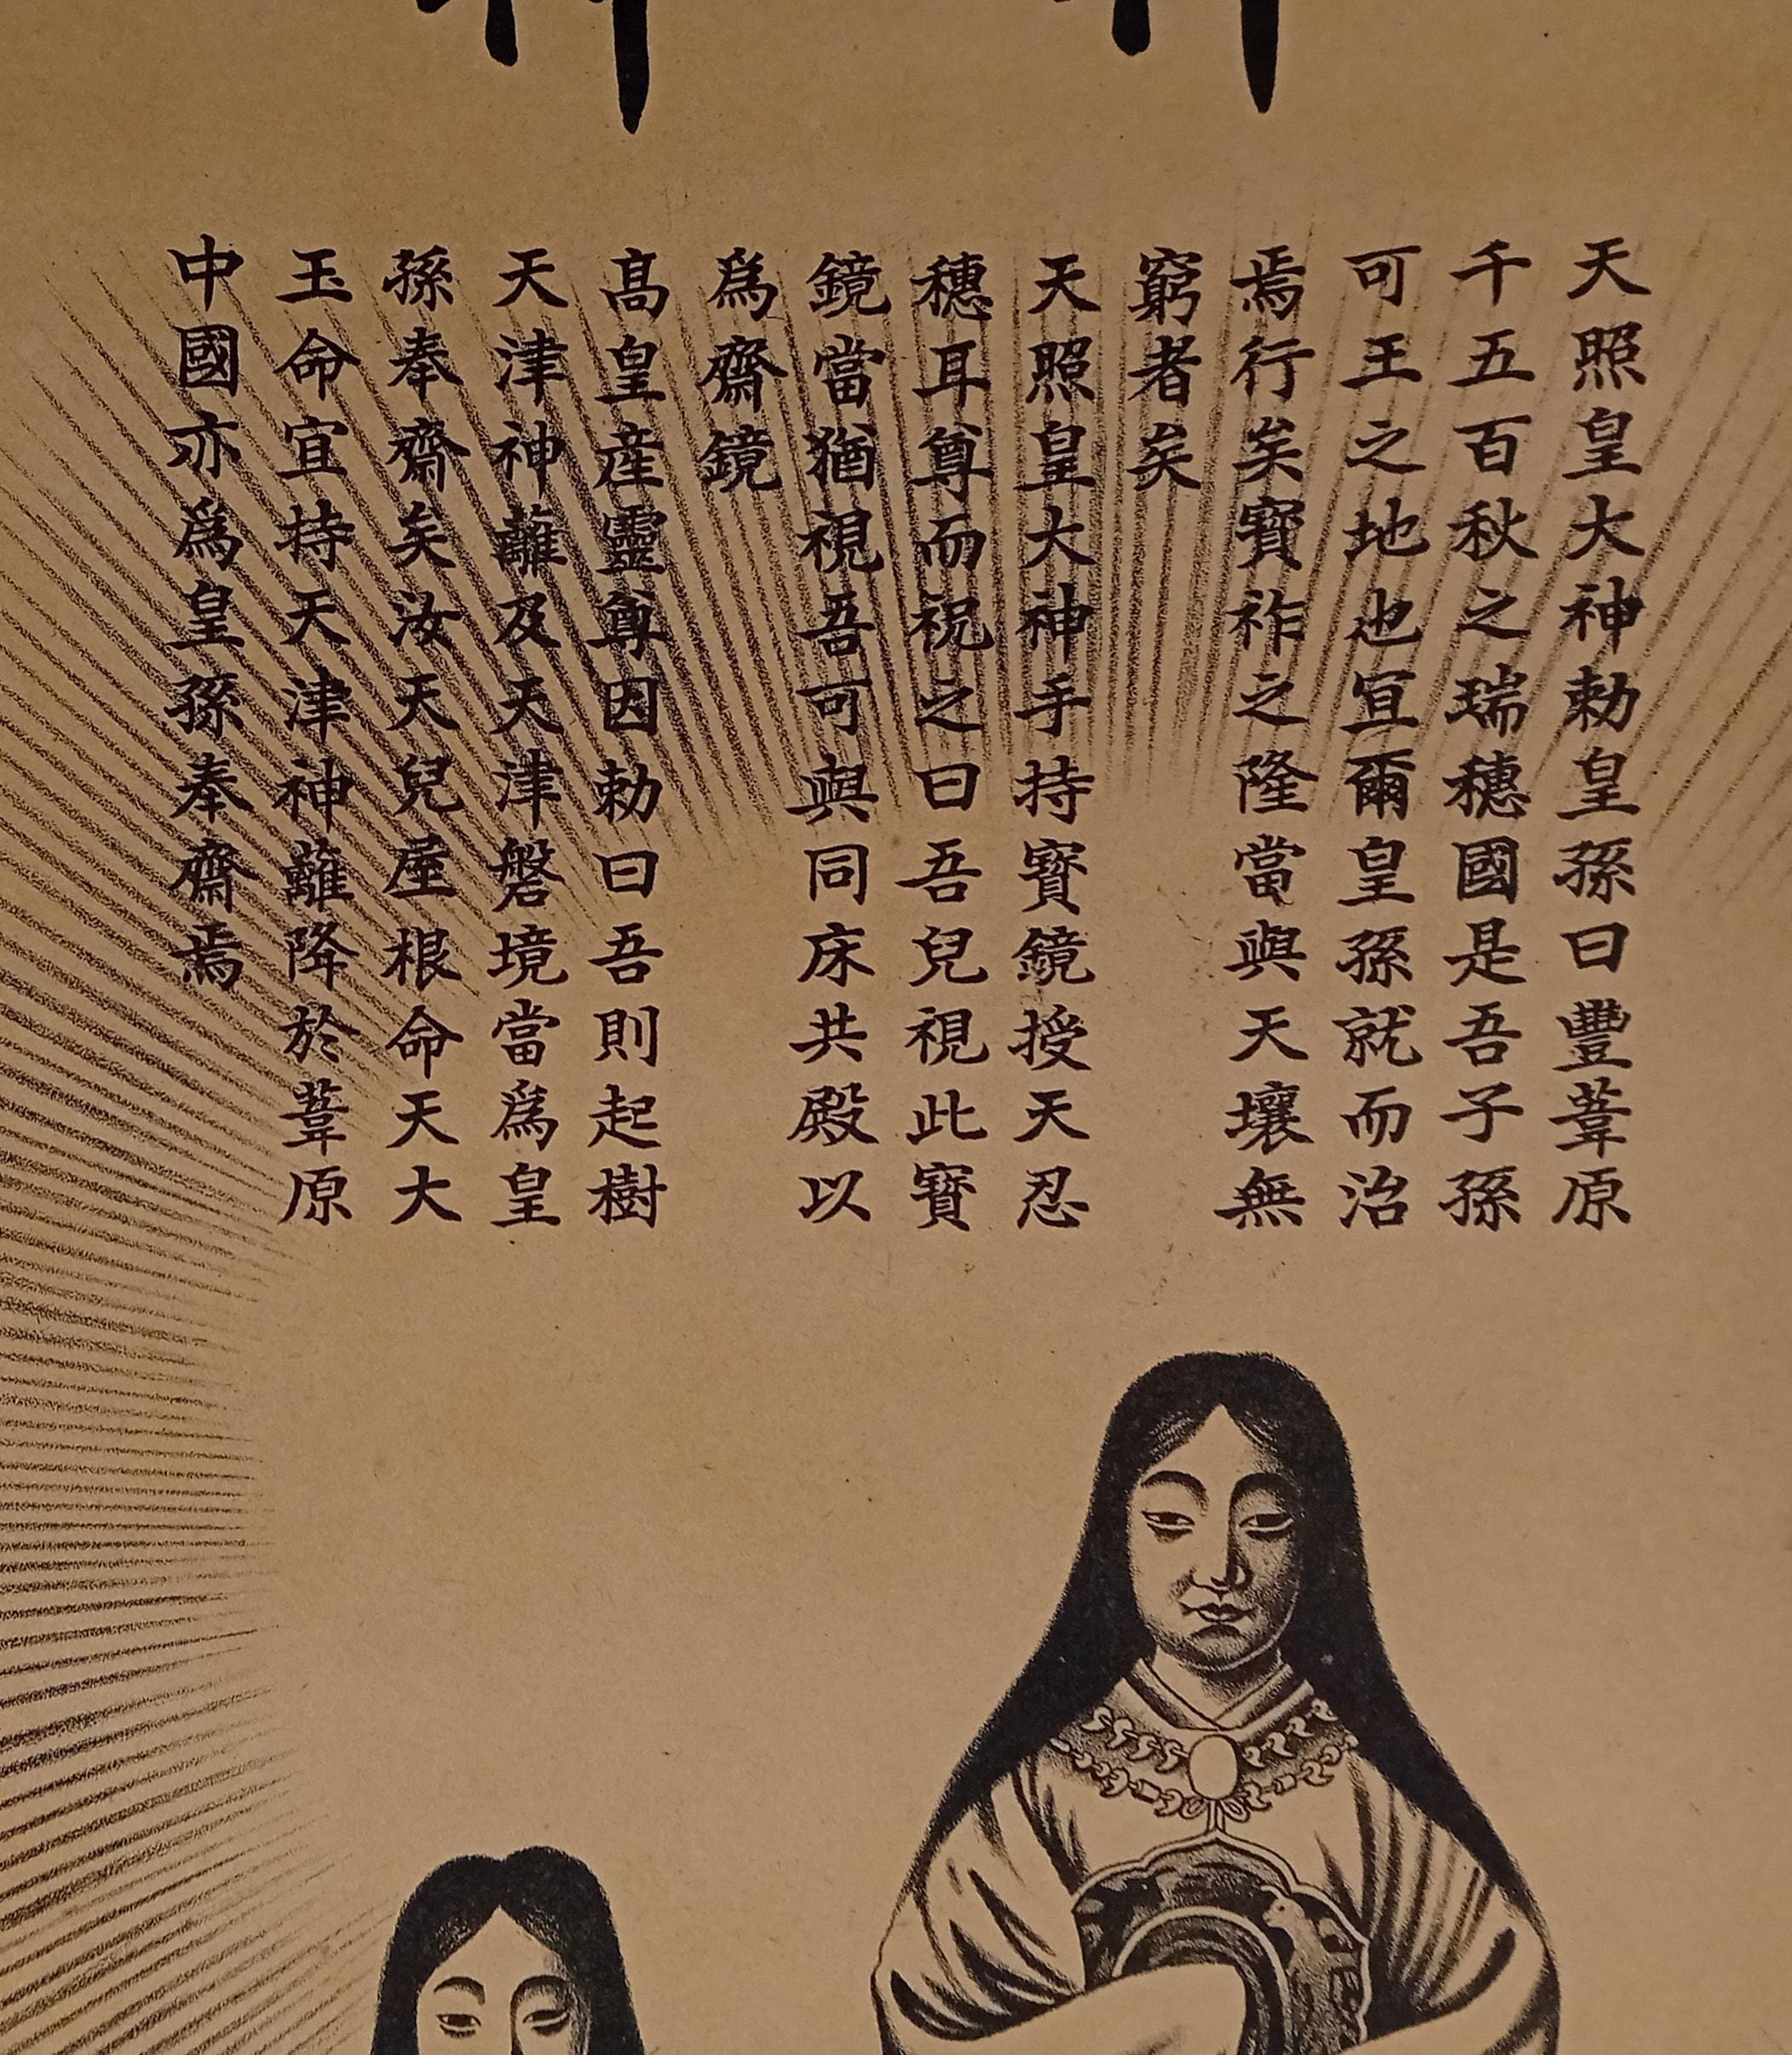 天照皇大神勅皇孫曰豐葦原
千五百秋之瑞穗國是吾子孫
可王之地也宜爾皇孫就而治
焉行矣寶祚之隆當與天壤無
窮者矣
天照皇大神手持寶鏡授天忍
穗耳尊而祝之曰吾兒視此寶
鏡當猶視吾可與同床共殿以
爲齋鏡
高皇産靈尊因勅曰吾則起樹
天津神籬及天津磐境當爲皇
孫奉齋矣汝天兒屋根命天大
玉命宜持天津神籬降於葦原
中國亦爲皇孫奉齋焉